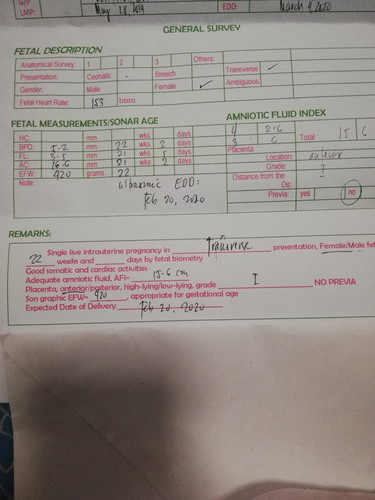 LMP: May 28, 2019 EDD: March 4, 2020
GENERAL SURVEY
FETAL DESCRIPTION
Anatomical Survey: 1 2 3 Others:
Presentation: Cephalic Breech Transverse ✓
Gender: Male Female ✓ Ambiguous
Fetal Heart Rate: 153 bpm
FETAL MEASUREMENTS/SONAR AGE
HC: mm wks days
BPD: 5.2 mm 22 wks 2 days
FL: 3.5 mm 21 wks 5 days
AC: 16.6 mm 21 wks 2 days
EFW: 420 grams 22
Note: EDD:
Feb 20, 2020
AMNIOTIC FLUID INDEX
4 2.6 Total 15 6
3 6
Placenta
Location:
Grade: I
Distance from the
Os:
Previa: yes no
REMARKS:
Single live intrauterine pregnancy in Transverse presentation, Female/Male fet
22 weeks and days by fetal biometry
Good somatic and cardiac activities
Adequate amniotic fluid, AFI= 15.6 cm
Placenta, anterior/posterior, high-lying/low-lying, grade I NO PREVIA
Son graphic EFW= 420, appropriate for gestational age
Expected Date of Delivery Feb 20, 2020